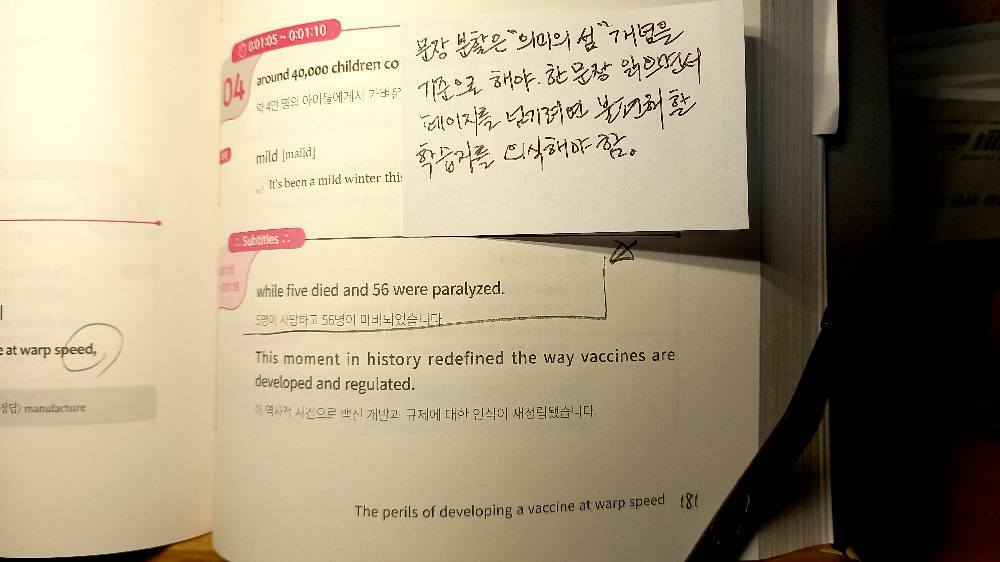 at warp speed,
정답) manufacture
0:01:05 ~ 0:01:10
04
around 40,000 children co
약 4만 명의 아이들에게서 가벼운
mild [maild]
It's been a mild winter this
문장 분할은 "의미의 섬" 개념을
기준으로 해야. 한 문장 읽으면서
페이지를 넘기려면 불편해 할
학습자를 의식해야 함.
Subtitles
while five died and 56 were paralyzed.
5명이 사망하고 56명이 마비되었습니다.
This moment in history redefined the way vaccines are
developed and regulated.
이 역사적 사건으로 백신 개발과 규제에 대한 인식이 재정립됐습니다.
The perils of developing a vaccine at warp speed 181